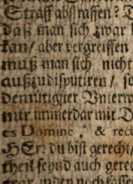 Straff abschaffen? D
daß man sich zwar
kan/ aber vergreiffen
muß man sich nicht
außzudisputiren/ so
demütigier Unterw
nur immerdar mit D
es Domine, & rec
HErr du bist gerecht/
then seynd auch gere